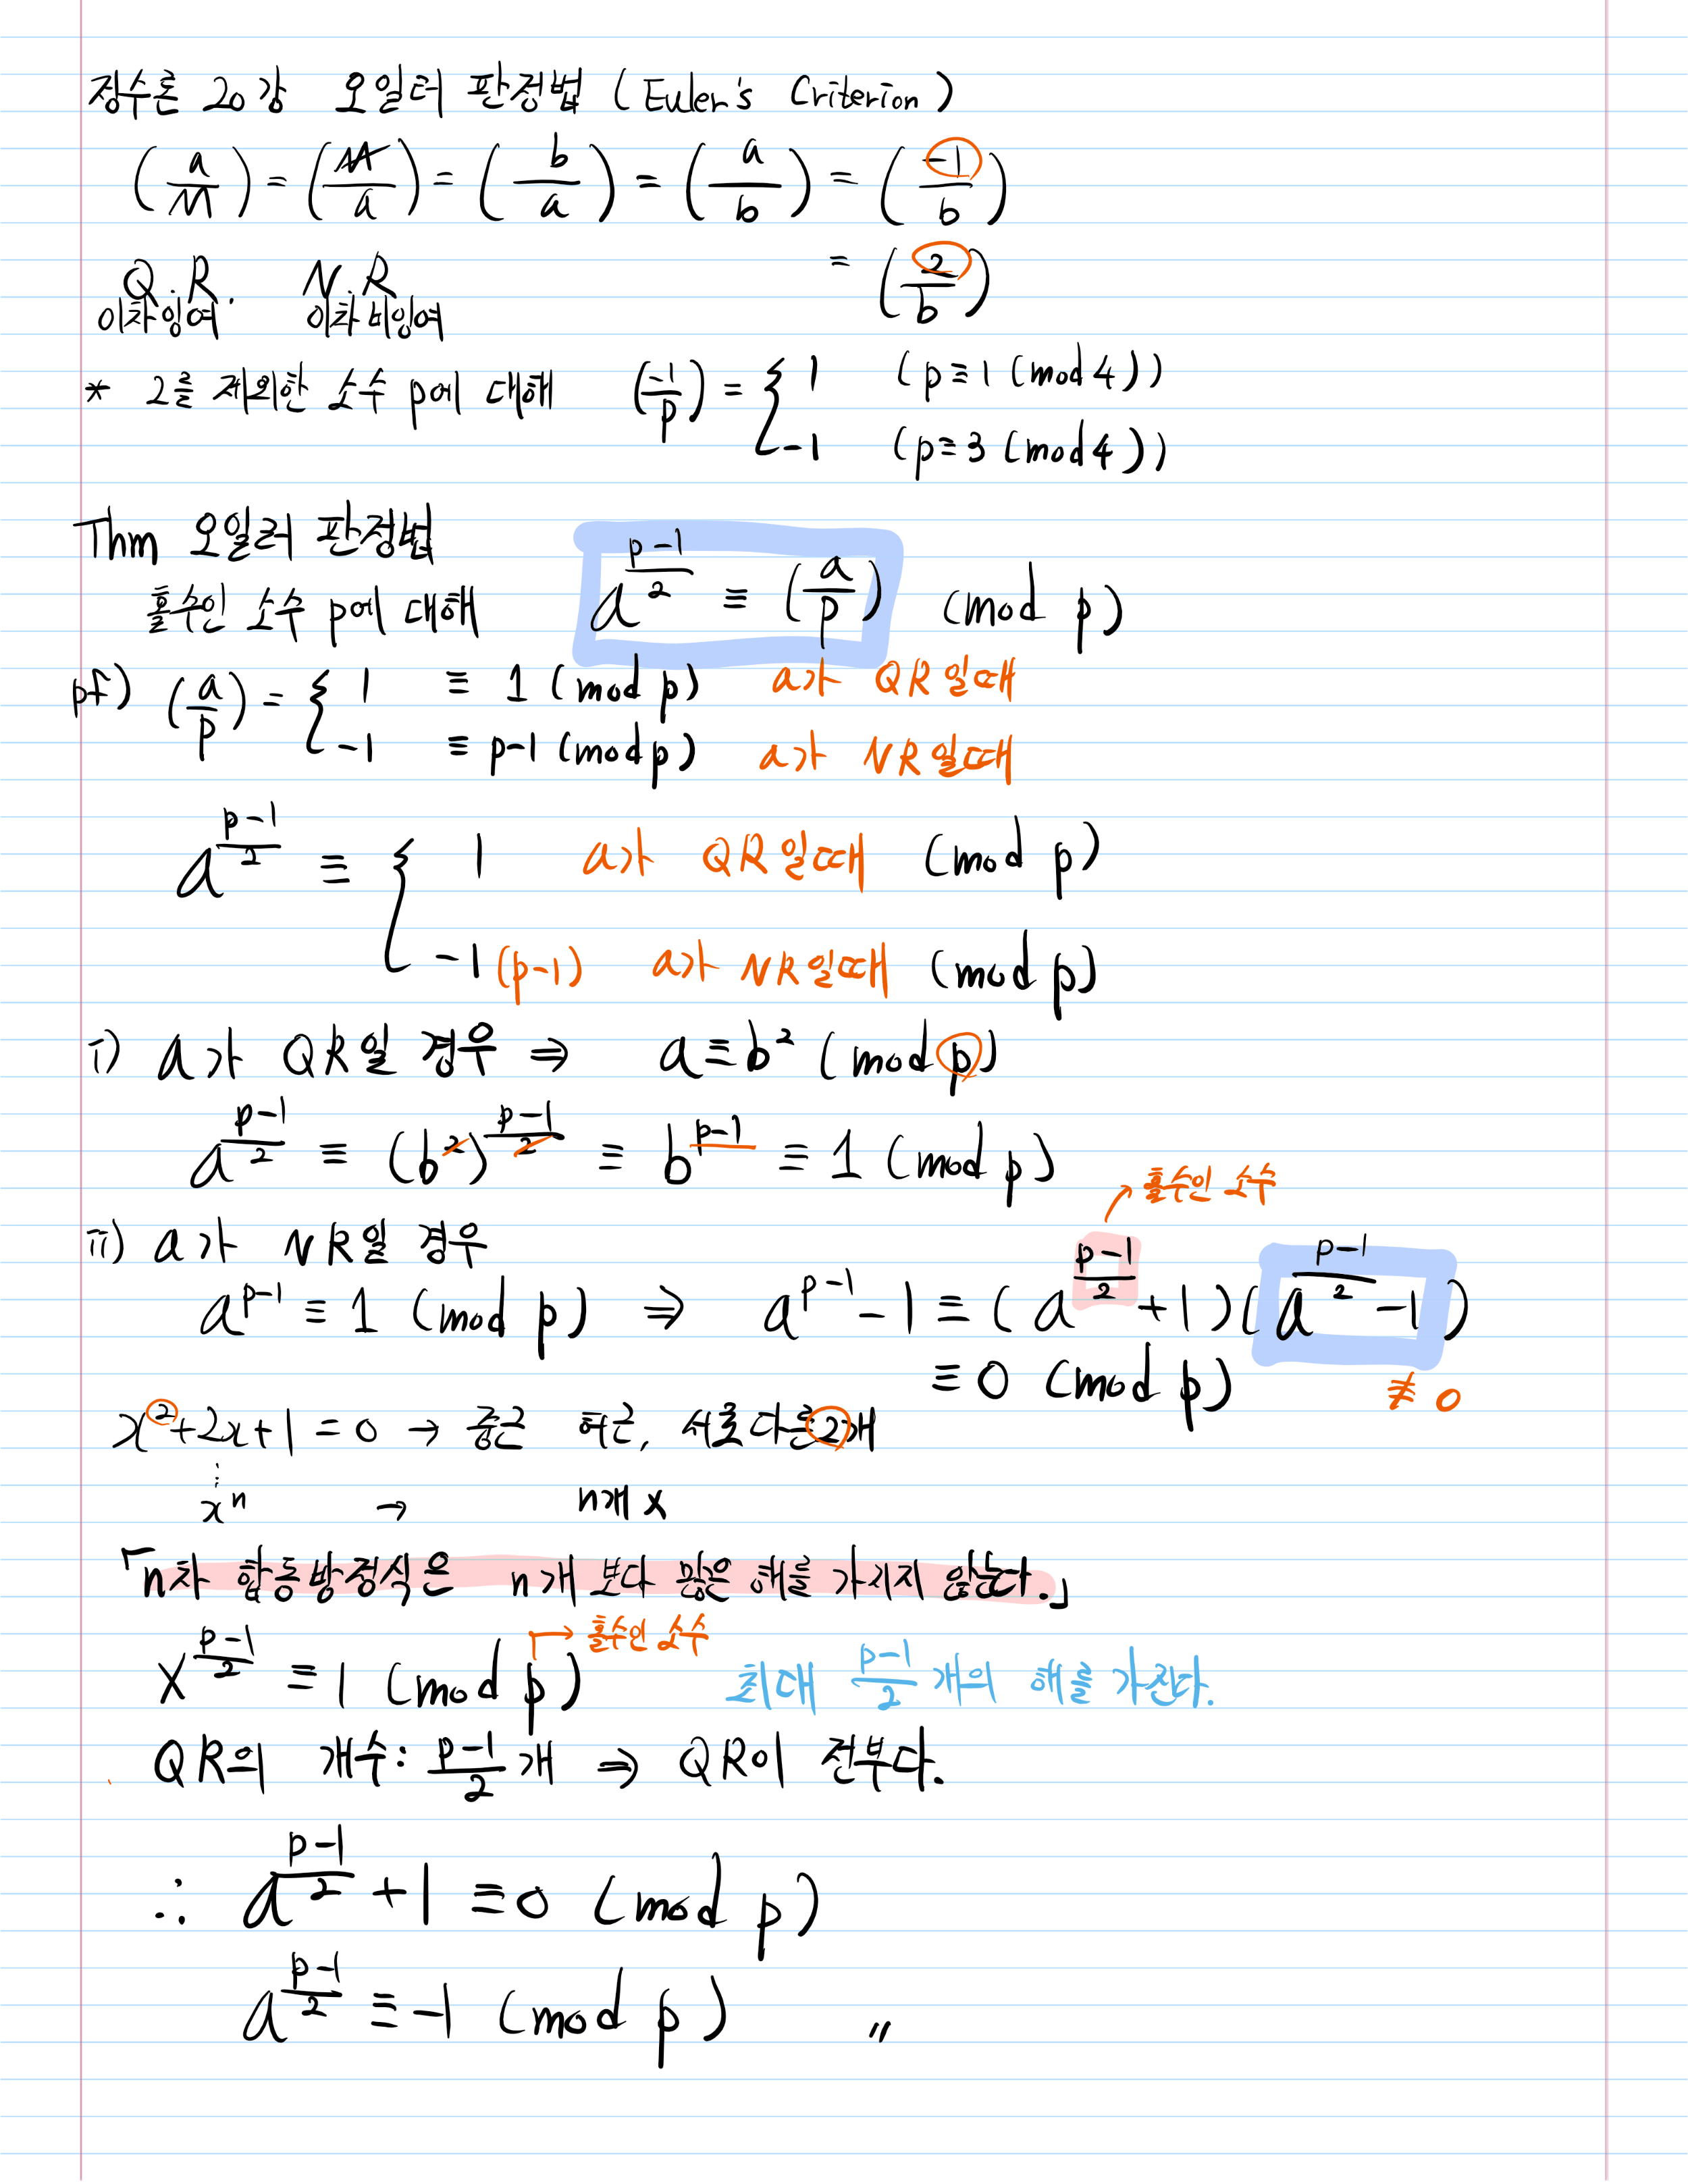 정수론 20강 오일러 판정법 (Euler's Criterion)
(a/M) = (M/a) = (b/a) = (a/b) = (-1/b)
= (2/b)
Q.R. N.R
이차잉여 이차비잉여
* 2를 제외한 소수 p에 대해 (-1/p) = { 1 (p≡1 (mod 4))
-1 (p≡3 (mod 4))
Thm 오일러 판정법
홀수인 소수 p에 대해 a^((p-1)/2) ≡ (a/p) (mod p)
pf) (a/p) = { 1 ≡ 1 (mod p) a가 QR일때
-1 ≡ p-1 (mod p) a가 NR일때
a^((p-1)/2) ≡ { 1 a가 QR일때 (mod p)
-1 (p-1) a가 NR일때 (mod p)
i) a가 QR일 경우 ⇒ a≡b² (mod p)
a^((p-1)/2) ≡ (b²)^((p-1)/2) ≡ b^(p-1) ≡ 1 (mod p)
→ 홀수인 소수
ii) a가 NR일 경우
a^(p-1) ≡ 1 (mod p) ⇒ a^(p-1) - 1 ≡ (a^((p-1)/2) + 1)(a^((p-1)/2) - 1)
≡ 0 (mod p) ≢ 0
x²+2x+1 = 0 → 중근 허근, 서로다른2개
⋮
xⁿ → n개 x
「n차 합동방정식은 n개 보다 많은 해를 가지지 않는다.」
→ 홀수인 소수
x^((p-1)/2) ≡ 1 (mod p) 최대 (p-1)/2 개의 해를 가진다.
QR의 개수: (p-1)/2 개 ⇒ QR이 전부다.
∴ a^((p-1)/2) + 1 ≡ 0 (mod p)
a^((p-1)/2) ≡ -1 (mod p) 〃